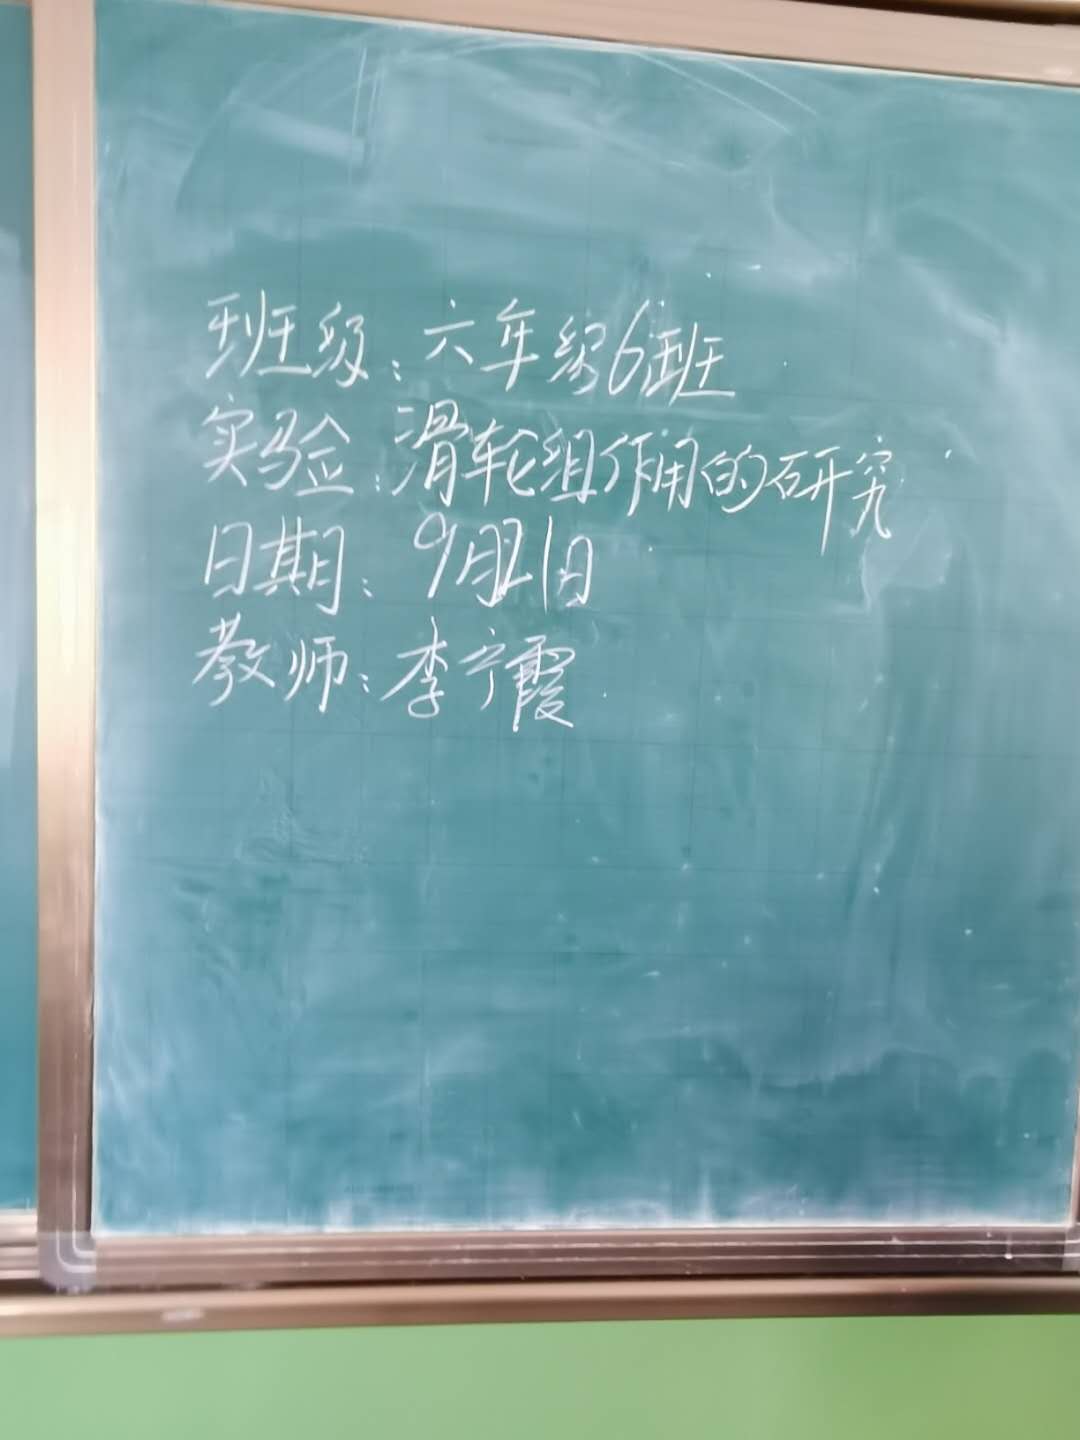 班级：六年级6班
实验：滑轮组作用的研究
日期：9月21日
教师：李宁霞